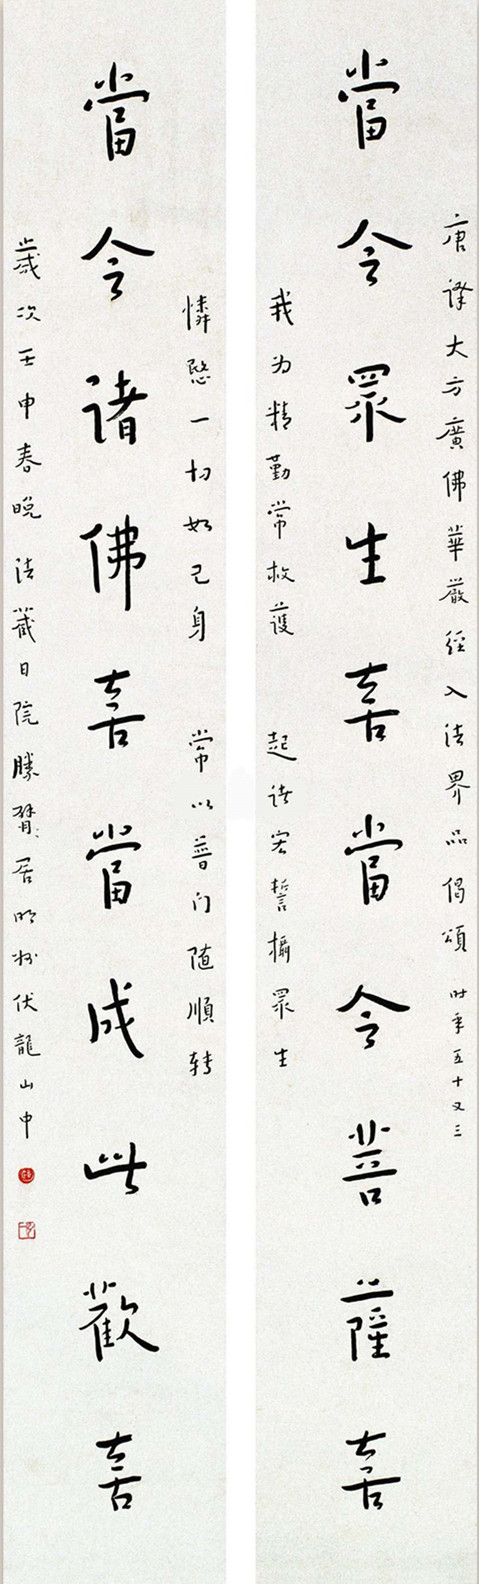 唐译大方廣佛華嚴經入法界品偈頌 时年五十又三
當令眾生喜當令菩薩喜
我为精勤常救護 起诸宏誓攝眾生
憐愍一切如己身 常以普门随順转
當令诸佛喜當成此歡喜
歲次壬申春晚法藏日院勝臂居明州伏龍山中